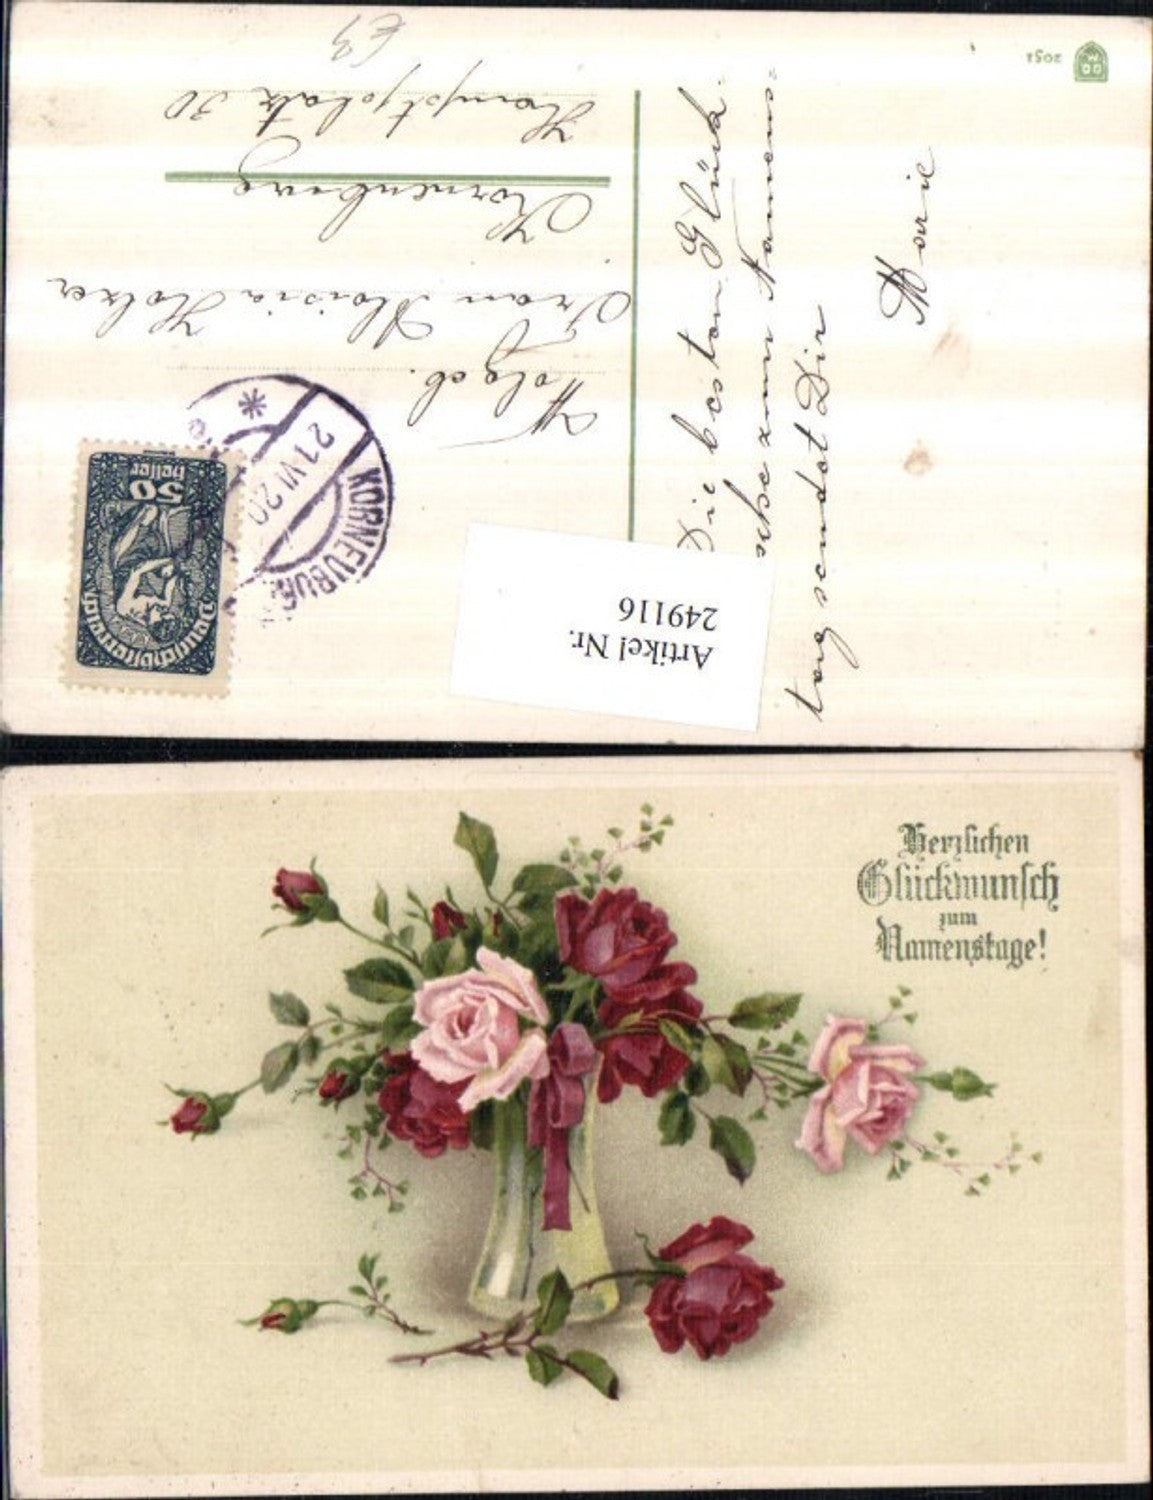 2051
W
Die besten Glück-
sche zum Namens-
tag sendet Dir
Marie
Wolgeb.
Frau Aloisia Holzer
Korneuburg
Hauptplatz 30
€3
KORNEUBUR
21.VI.20
*
50
heller
Deutschösterreich
Artikel Nr.
249116
Herzlichen
Glückwunsch
zum
Namenstage!